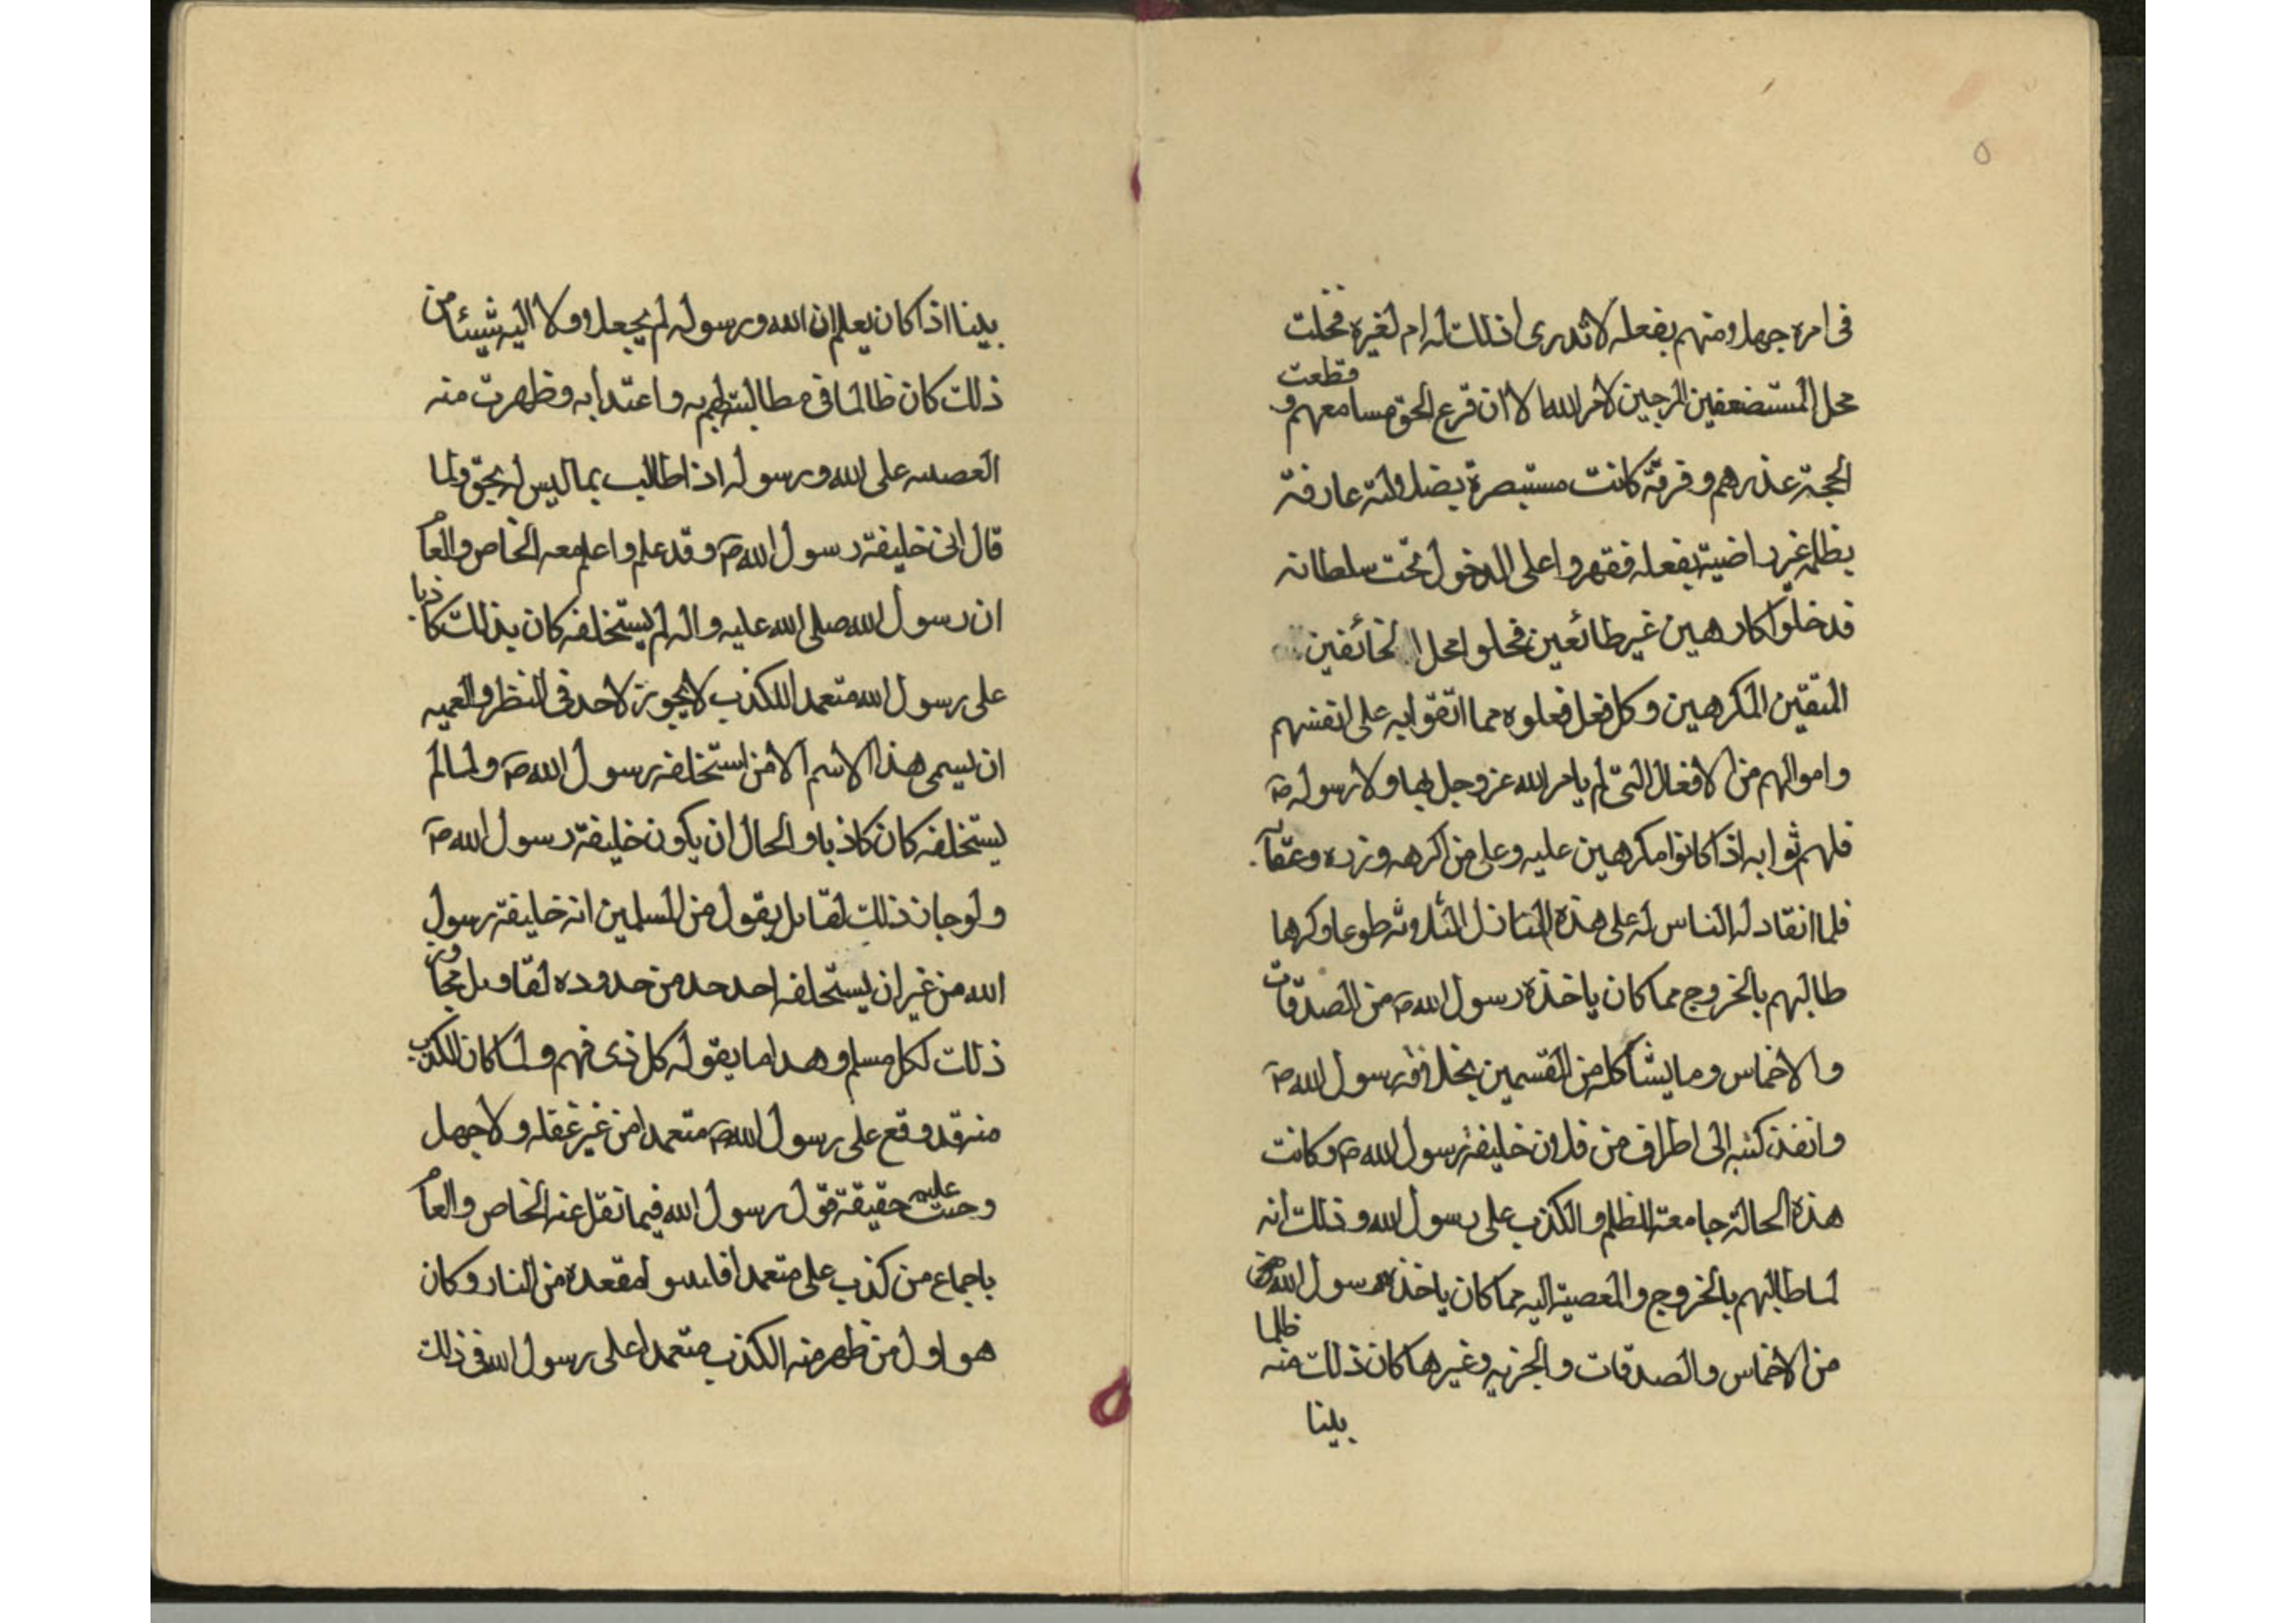 ٥
فى امره جهلا ومنهم بفعله لا تدرى اذلك له ام لغيره فحلت
محل المستضعفين المرجين لامر الله الا ان قرع الحق مسامعهم و قطعت
الحجة عذرهم وفرقة كانت مستبصرة بضلالته عارفة
بظلمه غير راضية بفعله فقهروا على الدخول تحت سلطانه
فدخلوا كارهين غير طائعين فحلوا محل الخائفين
المتقين المكرهين وكل فعل فعلوه مما اتقوا به على انفسهم
واموالهم من الافعال التى لم يامر الله عز وجل بها ولا رسوله ص
فلهم ثوابه اذا كانوا مكرهين عليه وعلى من اكرهه وزره وعقابه
فلما انقاد له الناس له على هذه المنازل الثلاثه طوعا وكرها
طالبهم بالخروج مما كان ياخذه رسول الله ص من الصدقات
والاخماس وما يشاكله من القسمين بخلافة رسول الله ص
وانفذ كتبه الى اطراف من فلان خليفة رسول الله ص وكانت
هذه الحالة جامعة الظلم والكذب على رسول الله وذلك انه
لما طالبهم بالخروج والمعصية اليه مما كان ياخذه رسول الله ص من
من الاخماس والصدقات والجزيه وغيرها كان ذلك منه ظلما
بينا
بينا اذا كان يعلم ان الله ورسوله لم يجعلا ولا اليه شيئا من
ذلك كان ظالما فى مطالبتهم به واعتدا به وظهرت منه
العصبيه على الله ورسوله اذا طالب بما ليس له بحق ولما
قال انى خليفة رسول الله ص وقد علم واعلم معه الخاص والعام
ان رسول الله صلى الله عليه واله لم يستخلفه كان بذلك كاذبا
على رسول الله متعمدا للكذب لا يجوز لاحد فى النظر والعميه
ان يسمى هذا الاسم الا من استخلفه رسول الله ص ولما لم
يستخلفه كان كاذبا والحال ان يكون خليفة رسول الله ص
ولو جاز ذلك لقائل يقول من المسلمين انه خليفة رسول
الله من غير ان يستخلفه احد حد من حدوده لقاويل تجاوز
ذلك لكل مسلم وهدا ما يقوله كل ذى فهم ولما كان الكذب
منه قد وقع على رسول الله ص متعمدا من غير غفله ولا جهل
وحبت عليه حقيقة قول رسول الله فيما نقل عنه الخاص والعام
باجماع من كذب على متعمدا فليتبوا مقعده من النار وكان
هو اول من ظهر منه الكذب متعمدا على رسول الله فى ذلك